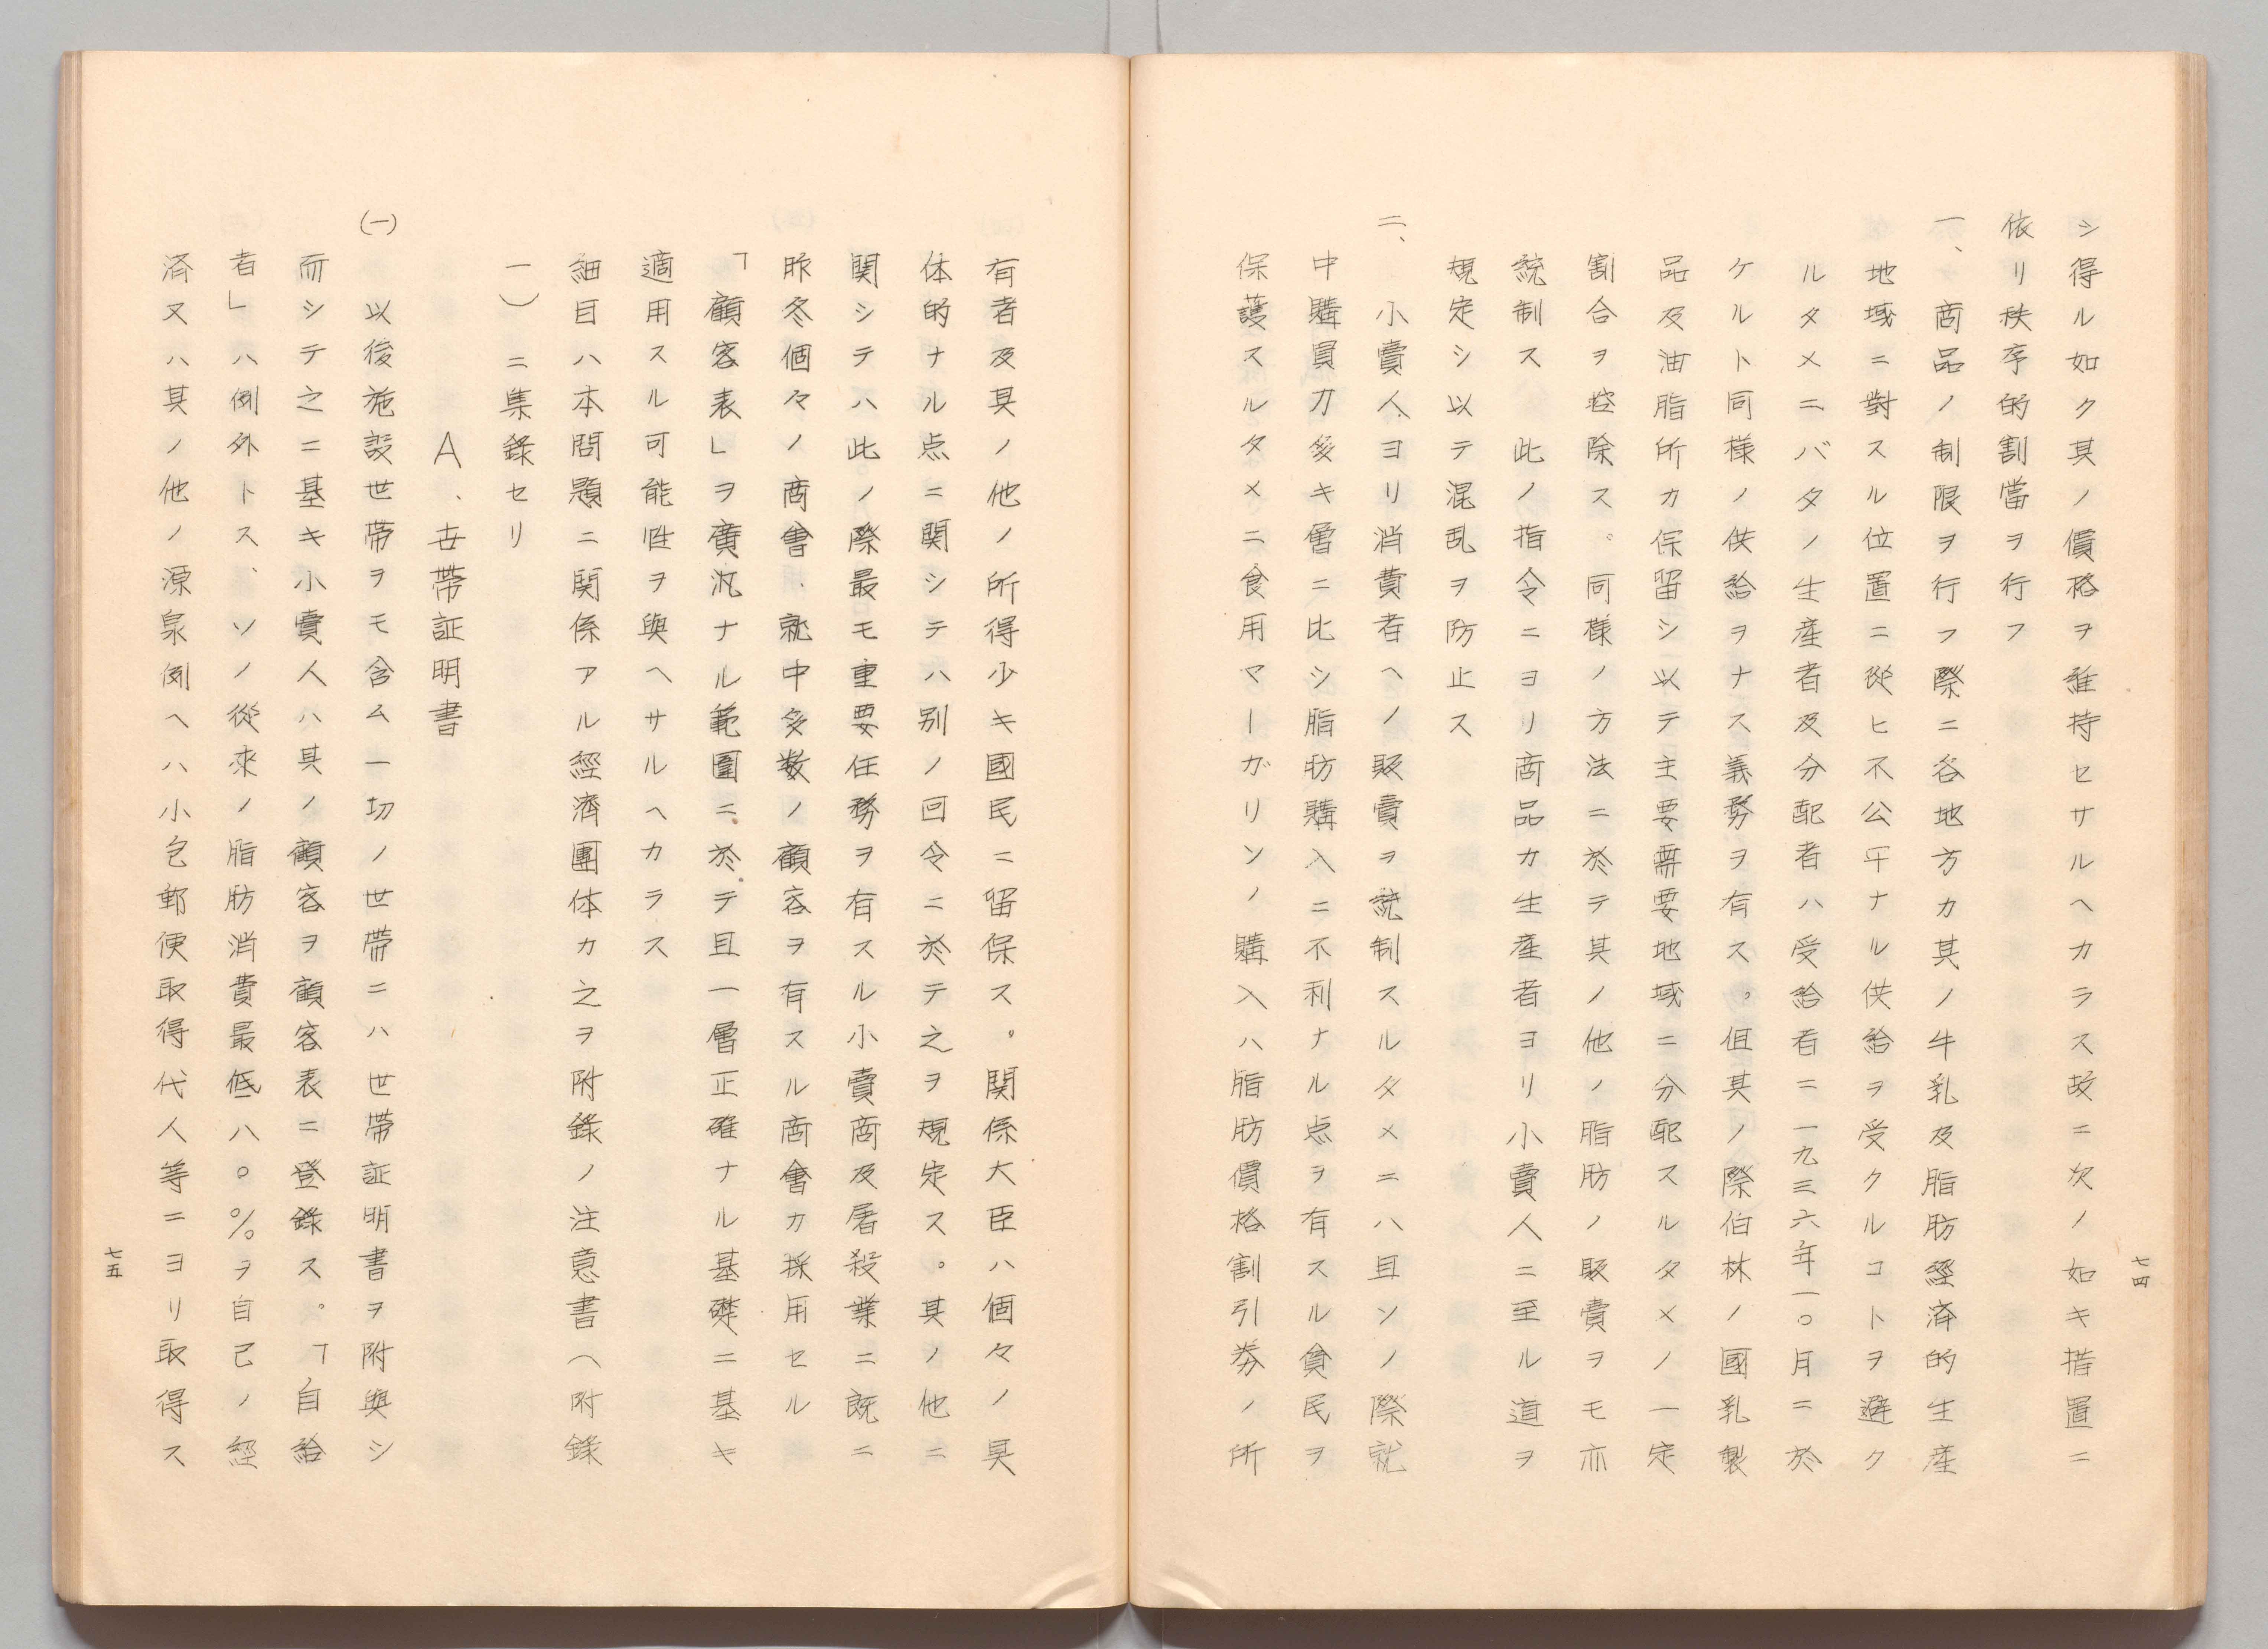 七四
シ得ル如ク其ノ價格ヲ維持セサルヘカラス故ニ次ノ如キ措置ニ
依リ秩序的割當ヲ行フ
一、商品ノ制限ヲ行フ際ニ各地方カ其ノ牛乳及脂肪經済的生産
地域ニ對スル位置ニ從ヒ不公平ナル供給ヲ受クルコトヲ避ク
ルタメニバタノ生産者及分配者ハ受給者ニ一九三六年一〇月ニ於
ケルト同様ノ供給ヲナス義務ヲ有ス。但其ノ際伯林ノ國乳製
品及油脂所カ保留シ以テ主要需要地域ニ分配スルタメノ一定
割合ヲ控除ス。同様ノ方法ニ於テ其ノ他ノ脂肪ノ販賣ヲモ亦
統制ス 此ノ指令ニヨリ商品カ生産者ヨリ小賣人ニ至ル道ヲ
規定シ以テ混乱ヲ防止ス
二、小賣人ヨリ消費者ヘノ販賣ヲ統制スルタメニハ且ソノ際就
中購買力多キ層ニ比シ脂肪購入ニ不利ナル点ヲ有スル貧民ヲ
保護スルタメニ食用マーガリンノ購入ハ脂肪價格割引券ノ所
有者及其ノ他ノ所得少キ國民ニ留保ス。関係大臣ハ個々ノ具
体的ナル点ニ関シテハ別ノ回令ニ於テ之ヲ規定ス。其ノ他ニ
関シテハ此ノ際最モ重要任務ヲ有スル小賣商及屠殺業ニ既ニ
昨冬個々ノ商會、就中多数ノ顧客ヲ有スル商會カ採用セル
「顧客表」ヲ廣汎ナル範圍ニ於テ且一層正確ナル基礎ニ基キ
適用スル可能性ヲ與ヘサルヘカラス
細目ハ本問題ニ関係アル經濟團体カ之ヲ附錄ノ注意書（附錄
一）ニ集錄セリ
A、世帶証明書
(一) 以後施設世帶ヲモ含ム一切ノ世帶ニハ世帶証明書ヲ附與シ
而シテ之ニ基キ小賣人ハ其ノ顧客ヲ顧客表ニ登錄ス。「自給
者」ハ例外トス、ソノ從來ノ脂肪消費最低八〇％ヲ自己ノ經
済又ハ其ノ他ノ源泉例ヘハ小包郵便取得代人等ニヨリ取得ス
七五